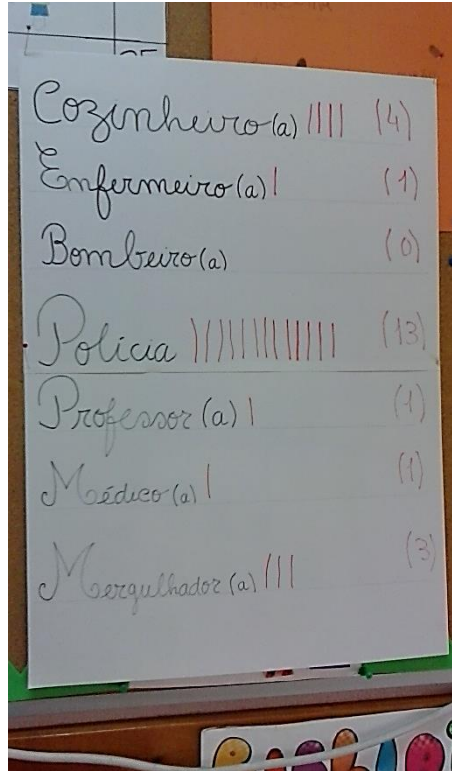 Cozinheiro(a) |||| (4)
Enfermeiro(a) | (1)
Bombeiro(a) (0)
Polícia ||||||||||||| (13)
Professor(a) | (1)
Médico(a) | (1)
Mergulhador(a) ||| (3)